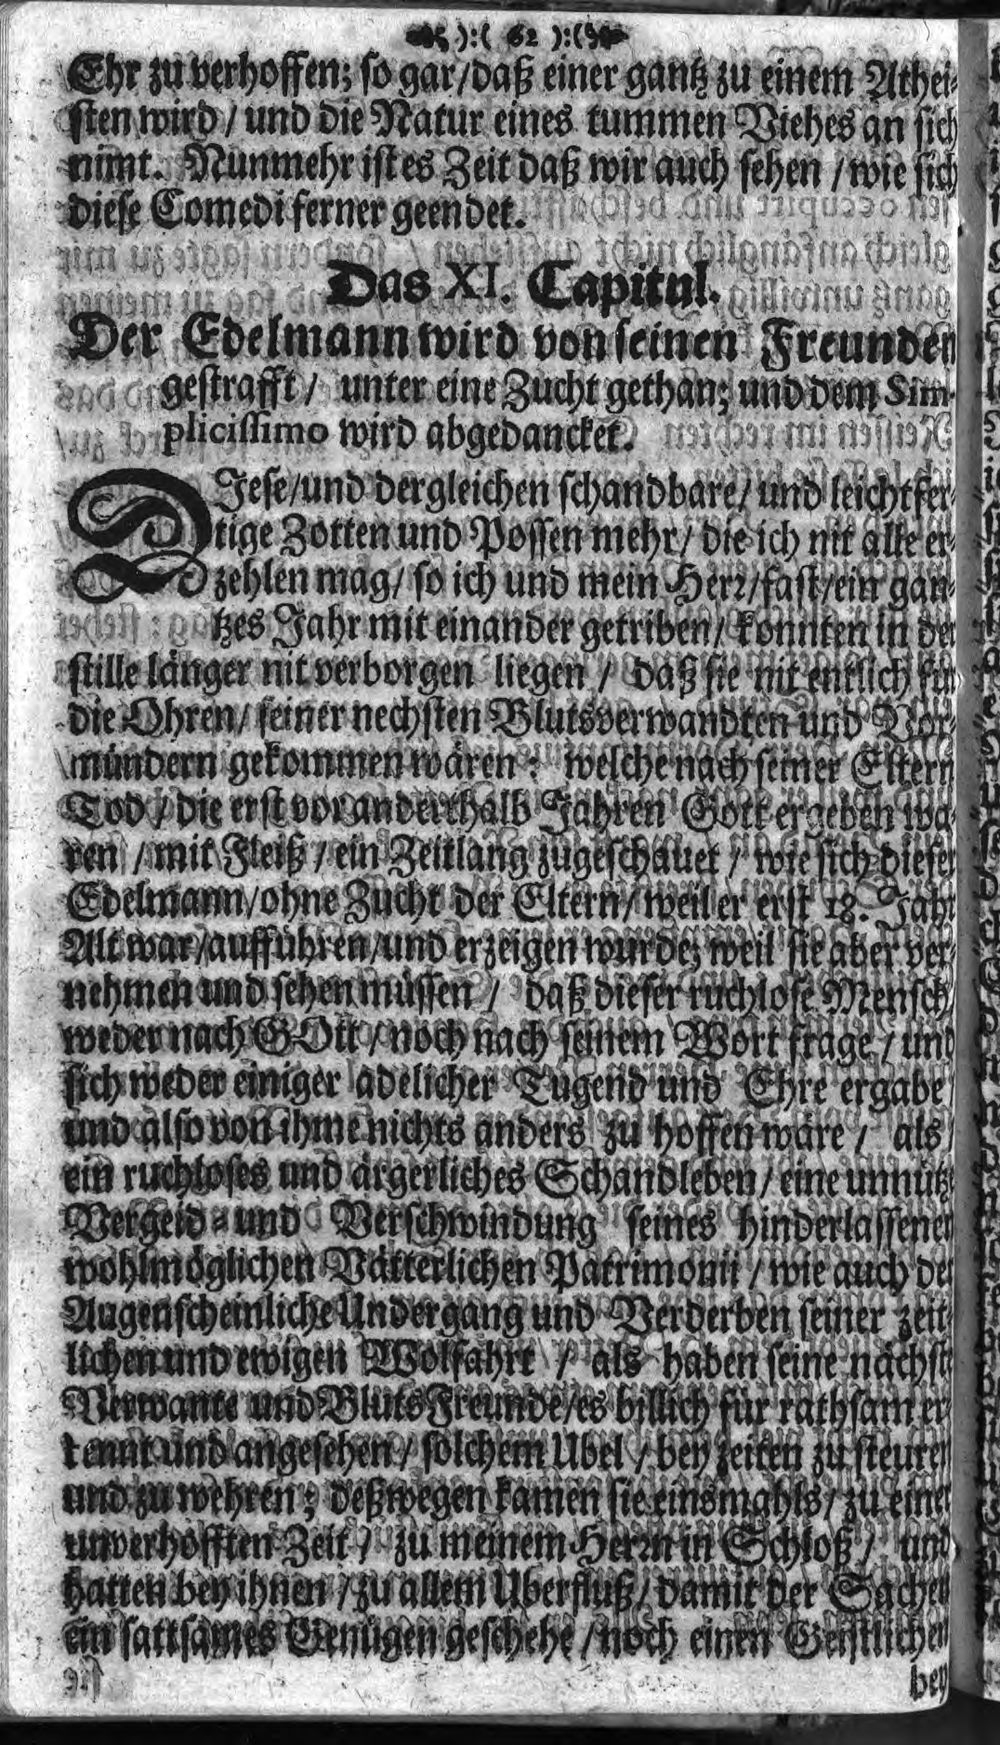 ):( 62 ):(
Ehr zu verhoffen; so gar/daß einer gantz zu einem Athei-
sten wird / und die Natur eines tummen Viehes an sich
nimt. Nunmehr ist es Zeit daß wir auch sehen / wie sich
diese Comedi ferner geendet.
Das XI. Capitul.
Der Edelmann wird von seinen Freunden
gestrafft / unter eine Zucht gethan; und dem Sim-
plicissimo wird abgedancket.
DJese/und dergleichen schandbare/ und leichtfer-
tige Zotten und Possen mehr/ die ich nit alle er-
zehlen mag/ so ich und mein Herr/fast/ein gan-
tzes Jahr mit einander getriben/ konnten in der
stille länger nit verborgen liegen / daß sie nit entlich für
die Ohren/ seiner nechsten Blutsverwandten und Vor-
mündern gekommen wären: welche nach seiner Eltern
Tod / die erst vor anderthalb Jahren Gott ergeben wa-
ren / mit Fleiß / ein Zeitlang zugeschauet / wie sich dieser
Edelmann/ohne Zucht der Eltern/ weil er erst 18. Jahr
Alt war/aufführen/und erzeigen wurde; weil sie aber ver-
nehmen und sehen müssen / daß dieser ruchlose Mensch/
weder nach GOtt / noch nach seinem Wort frage / und
sich weder einiger adelicher Tugend und Ehre ergabe/
und also von ihme nichts anders zu hoffen wäre / als/
ein ruchloses und ärgerliches Schandleben/ eine unnütze
Vergeid- und Verschwindung seines hinderlassenen
wohlmöglichen Vätterlichen Patrimonii / wie auch der
Augenscheinliche Undergang und Verderben seiner zeit-
lichen und ewigen Wolfahrt / als haben seine nächste
Verwante und BlutsFreunde/es billich für rathsam er-
kennt und angesehen/ solchem Ubel / bey zeiten zu steuren
und zu wehren; deßwegen kamen sie einsmahls/ zu einer
unverhofften Zeit / zu meinem Herrn in Schloß / und
hatten bey ihnen / zu allem Uberfluß/ damit der Sachen
ein sattsames Genügen geschehe / noch einen Geistlichen
bey